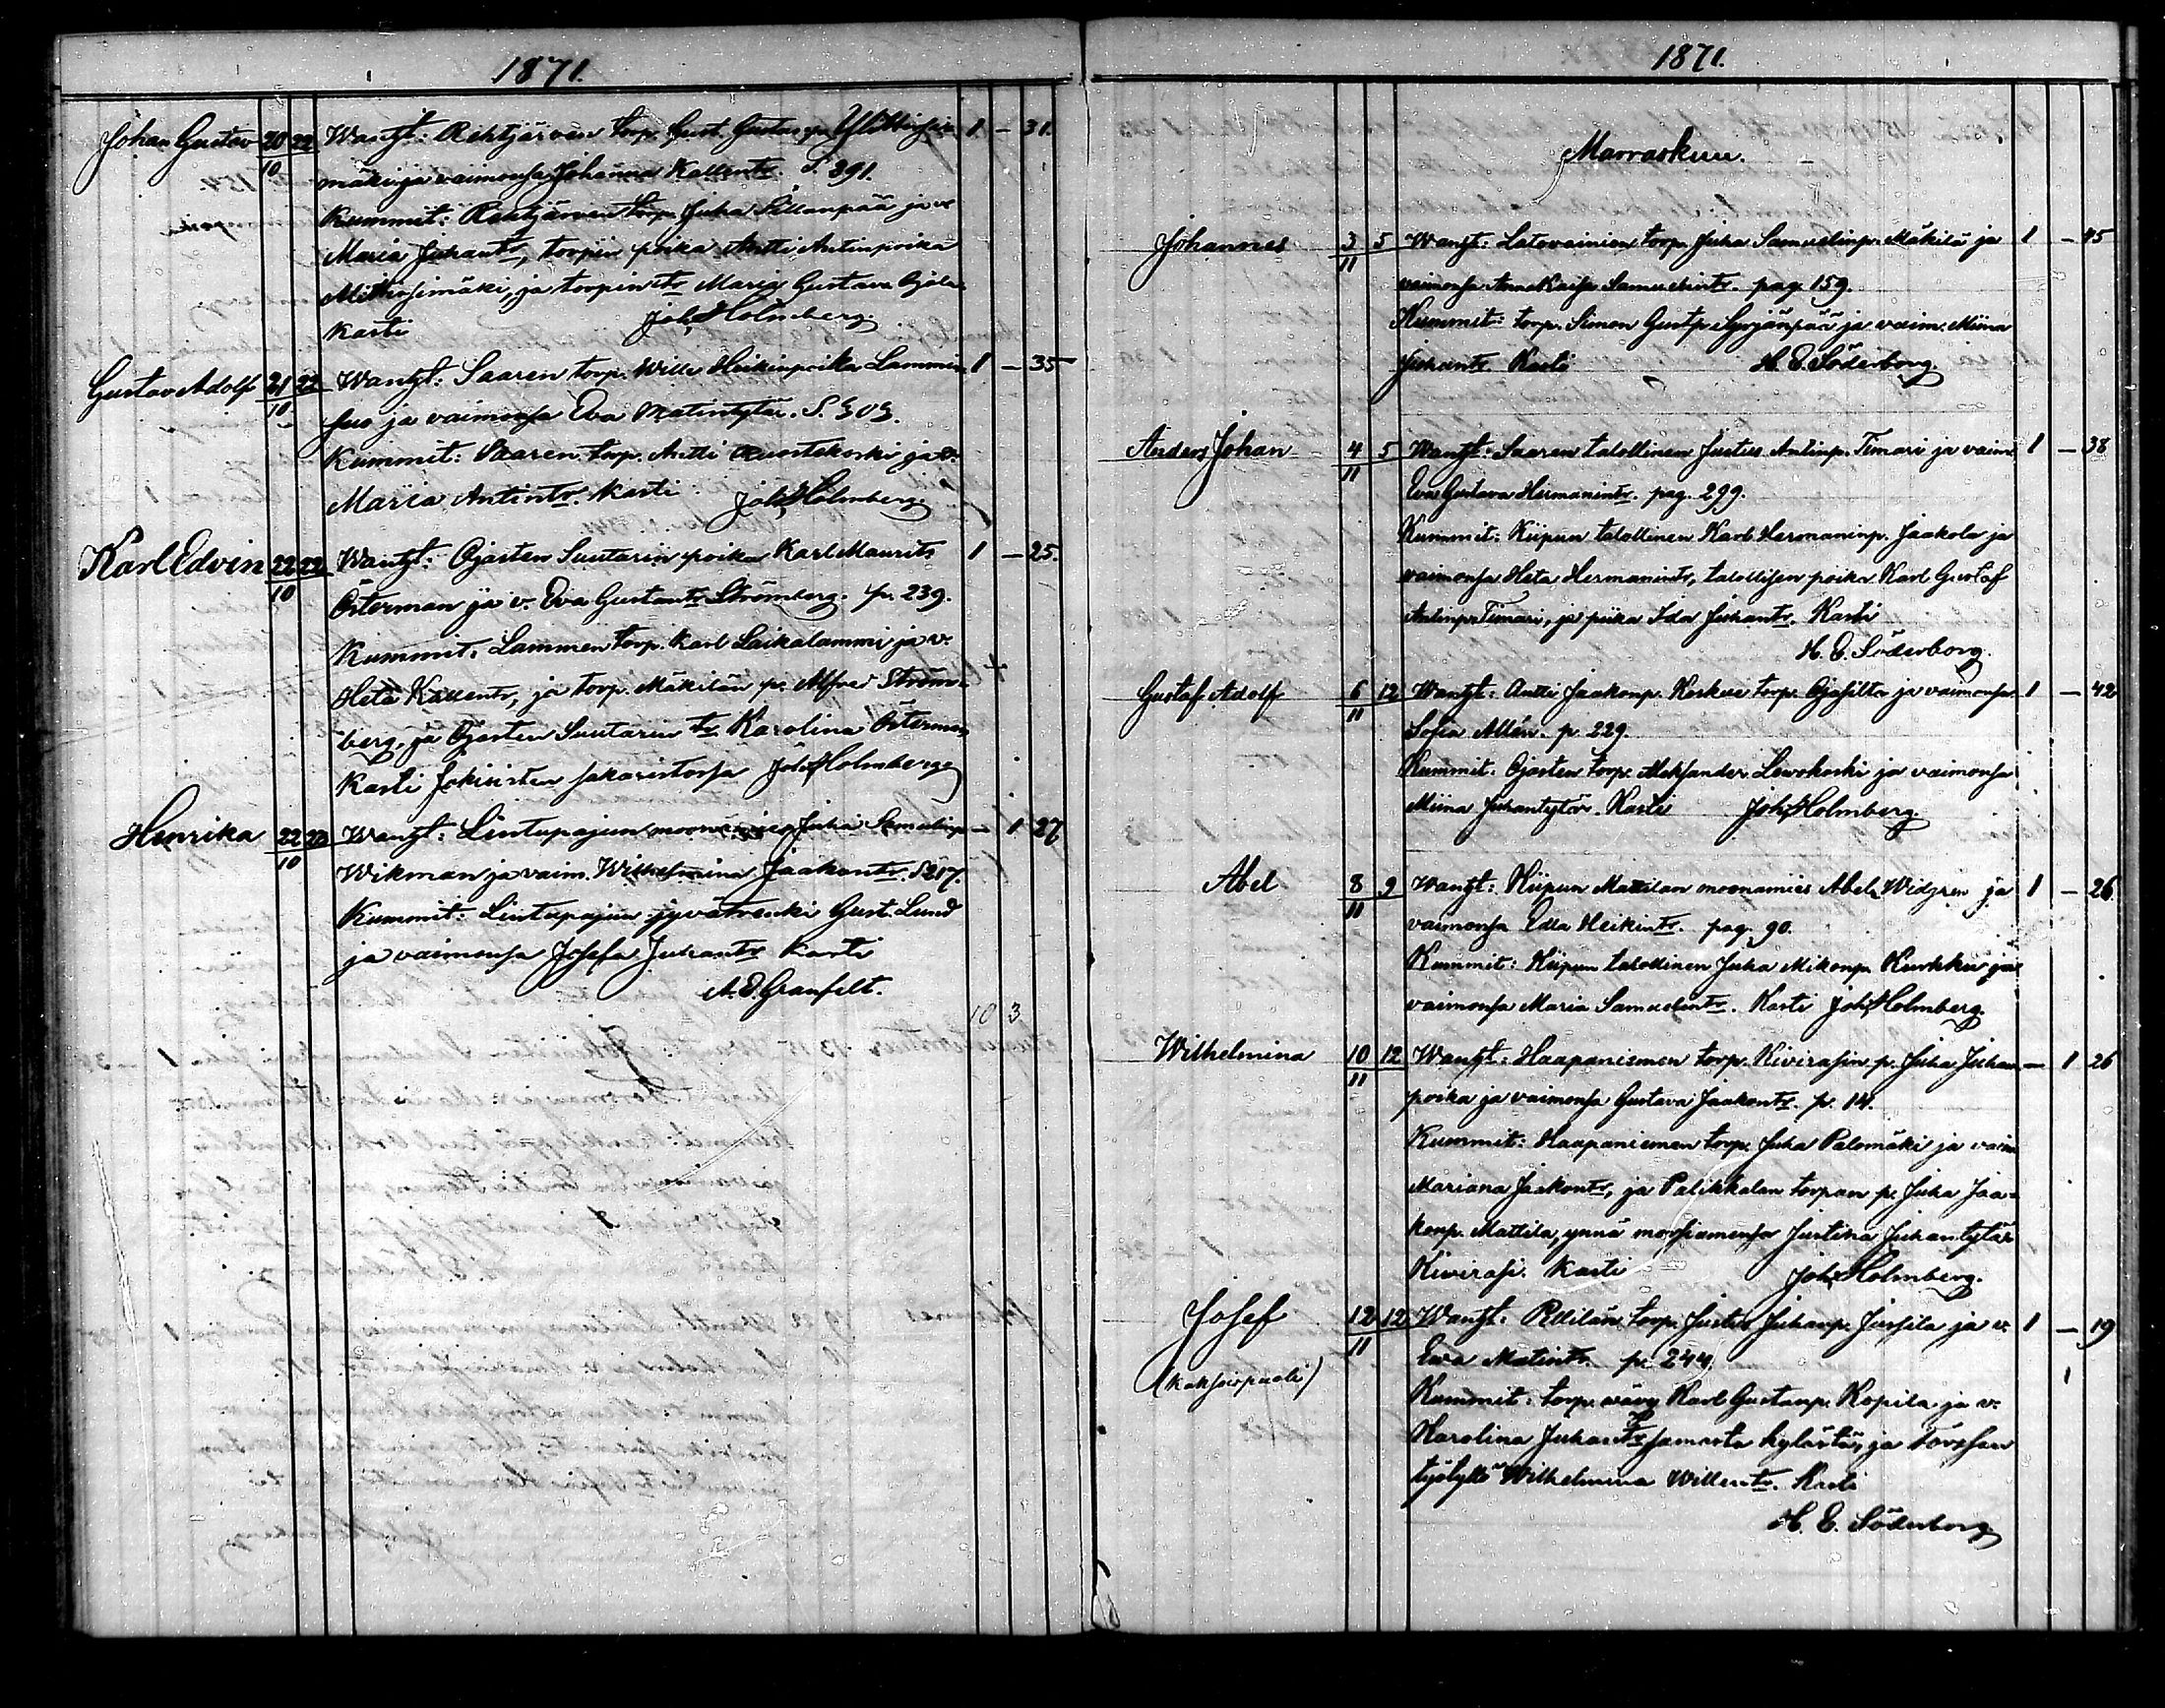 1871.
Johan Gustav 20/10 22 Wangt: Rehtijärven torp. Gust. Gustavp. Ylittinsin 1 — 31.
mäki ja vaimonsa Johanna Kallentr. S. 391.
Kummit: Rehtijärven torp. Juha Sillanpää ja v.
Maria Juhantr, torpin poika Antti Antinpoika
Mittinsimäki, ja torpin tr Maria Gustava Ojala.
Kasti Joh. Holmberg.
Gustav Adolf 21/10 22 Wangt: Saaren torp. Wille Heikinpoika Lammin 1 — 35
suo ja vaimonsa Eva Matintytär. S. 303.
Kummit: Saaren torp. Antti Kuortekoski ja v.
Maria Antintr. Kasti Joh. Holmberg.
Karl Edvin 22/10 22 Wangt: Ojasten Suutarin poika Karl Maurits 1 — 25.
Österman ja v. Eva Gustantr Strömberg. p. 239.
Kummit. Lammen torp. Karl Laikalammi ja v.
Heta Kallentr, ja torp. Mäkilän p. Alfred Ström-
berg, ja Ojasten Suutarin tr Karolina Österman
Kasti Jokioisten sakaristossa Joh. Holmberg
Henrika 22/10 23 Wangt: Lintupajun moonamies Juha Samulinp. — 1 27
Wikman ja vaim. Wilhelmina Jaakontr. S 217.
Kummit: Lintupajun jyvätrenki Gust. Lund
ja vaimonsa Josefa Juhantr Kasti
A. E. Granfelt.
10 3
1871.
Marraskuu.
Johannes 3/11 5 Wangt: Latovainion torp. Juha Samuelinp. Mäkilä ja 1 — 45
vaimonsa Anna Kaisa Samuelintr. pag. 159.
Kummit: torp. Simon Gustp. Syrjänpää ja vaim. Miina
Juhantr. Kasti H. E. Söderborg.
Anders Johan 4/11 5 Wangt: Saaren talollinen Justus Antinp. Timari ja vaim. 1 — 38
Eva Gustava Hermanintr. pag. 299.
Kummit: Kiipun talollinen Karl Hermaninp. Jaakola ja
vaimonsa Heta Hermanintr, talollisen poika Karl Gustaf
Antinp. Timari, ja piika Ida Juhantr. Kasti
H. E. Söderborg.
Gustaf Adolf 6/11 12 Wangt: Antti Jaakonp. Korkee torp. Ojasilta ja vaimonsa 1 — 42
Sofia Allén. p. 229.
Kummit. Ojasten torp. Aleksander Lewokoski ja vaimonsa
Miina Juhantytär Kasti Joh. Holmberg.
Abel 8/11 9 Wangt: Kiipun Mattilan moonamies Abel Widgren ja 1 — 26
vaimonsa Edla Heikintr. pag. 90.
Kummit: Kiipun talollinen Juha Mikonp. Kurkku ja
vaimonsa Maria Samuelintr. Kasti Joh. Holmberg.
Wilhelmina 10/11 12 Wangt: Haapaniemen torp. Kivirasin p. Juha Juhan — 1 26
poika ja vaimonsa Gustava Jaakontr. p. 14.
Kummit: Haapaniemen torp. Juha Palomäki ja vaim
Mariana Jaakontr, ja Palikkalan torpan p. Juha Jaa-
konp. Mattila, ynnä morsiamensa Justina Juhantytär
Kivirasi. Kasti Joh. Holmberg.
Josef 12/11 12 Wangt: torp. Justus Juhanp. Jussila ja v. 1 — 19
(kaksoispuoli) Eva Matintr. p. 244. 1
Kummit: torp. vävy Karl Gustanp. Kopila ja v.
Karolina Juhantr samasta kylästä, ja Torpan
tyttö Wilhelmina Willentr. Kasti
H. E. Söderborg